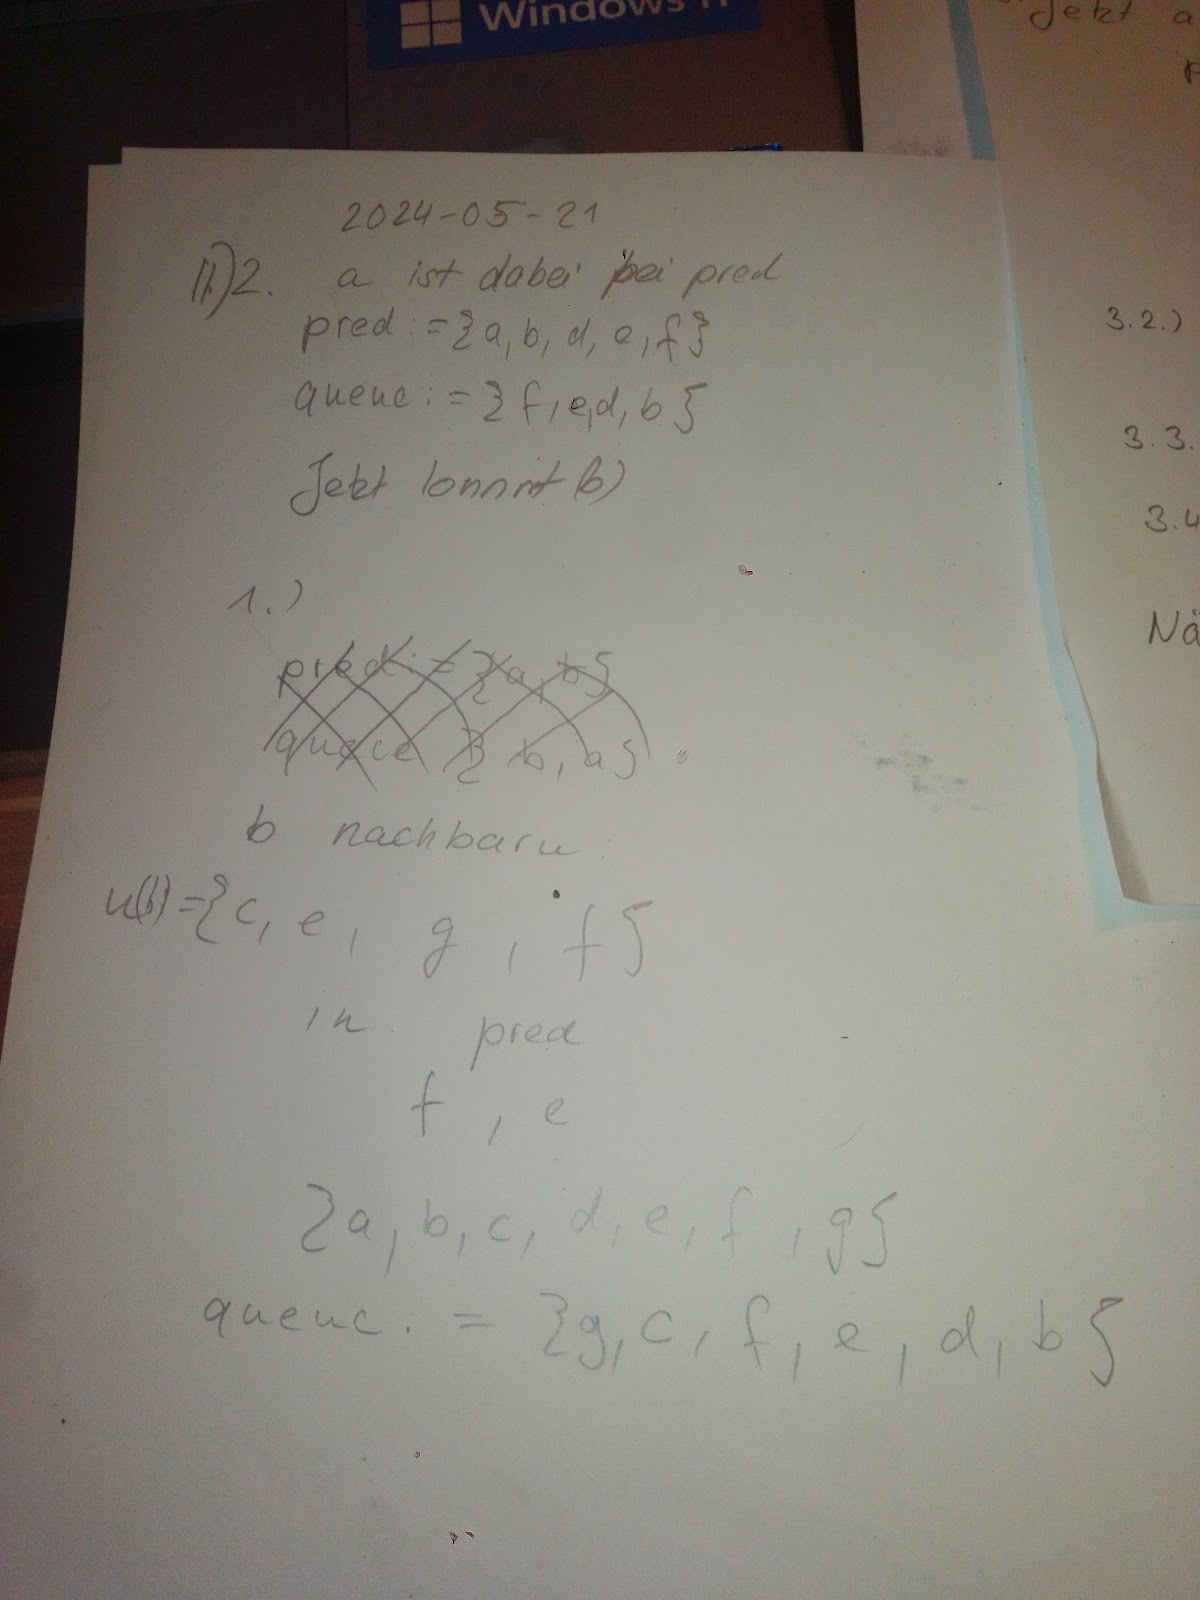 Windows 11
Jetzt a
2024-05-21
II.)2. a ist dabei bei pred
pred := {a, b, d, e, f}
queue := {f, e, d, b}
Jetzt kommt (b)
3.2.)
3.3.
3.4
Nä
1.)
pred := {a, b}
queue {b, a}
b nachbarn:
n(b) = {c, e, g, f}
in pred
f, e
{a, b, c, d, e, f, g}
queue. = {g, c, f, e, d, b}